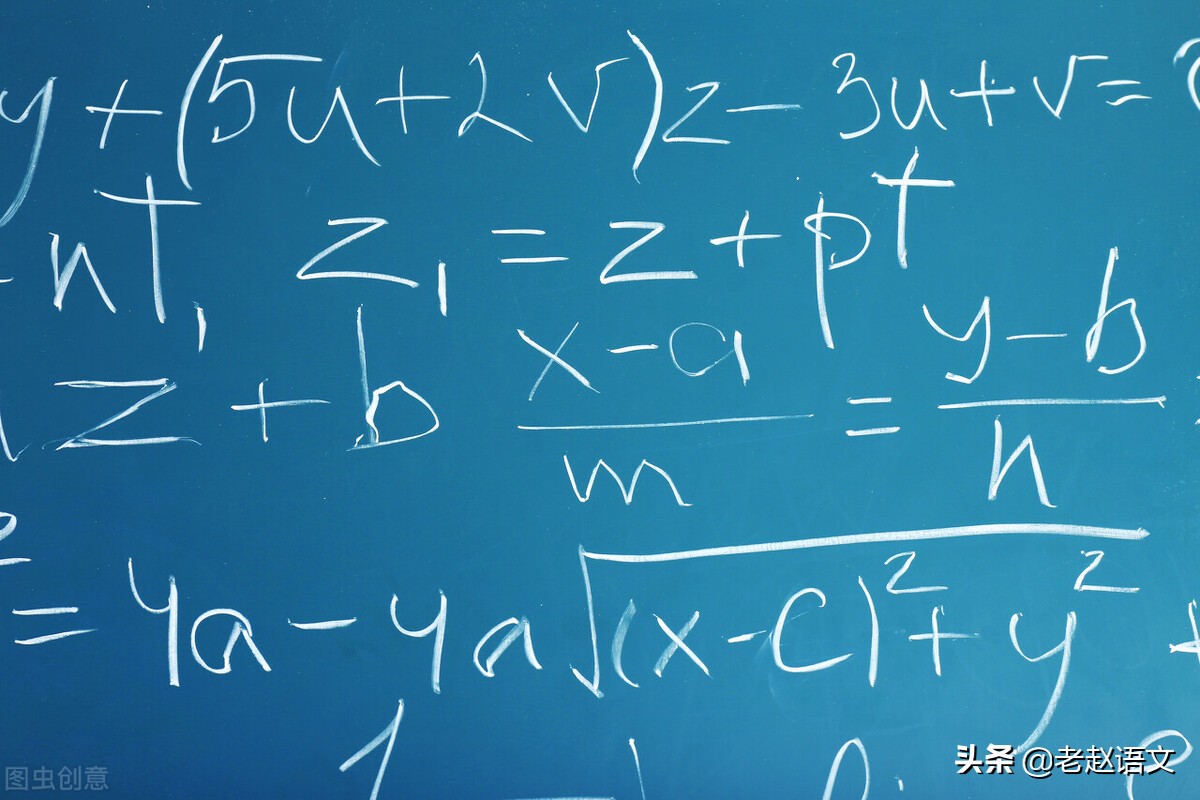 y+(5u+2v)z-3u+v=
nt, z₁=z+pt
z+b (x-a)/m=(y-b)/n
=4a-4a√((x-c)²+y²
1
头条 @老赵语文
图虫创意